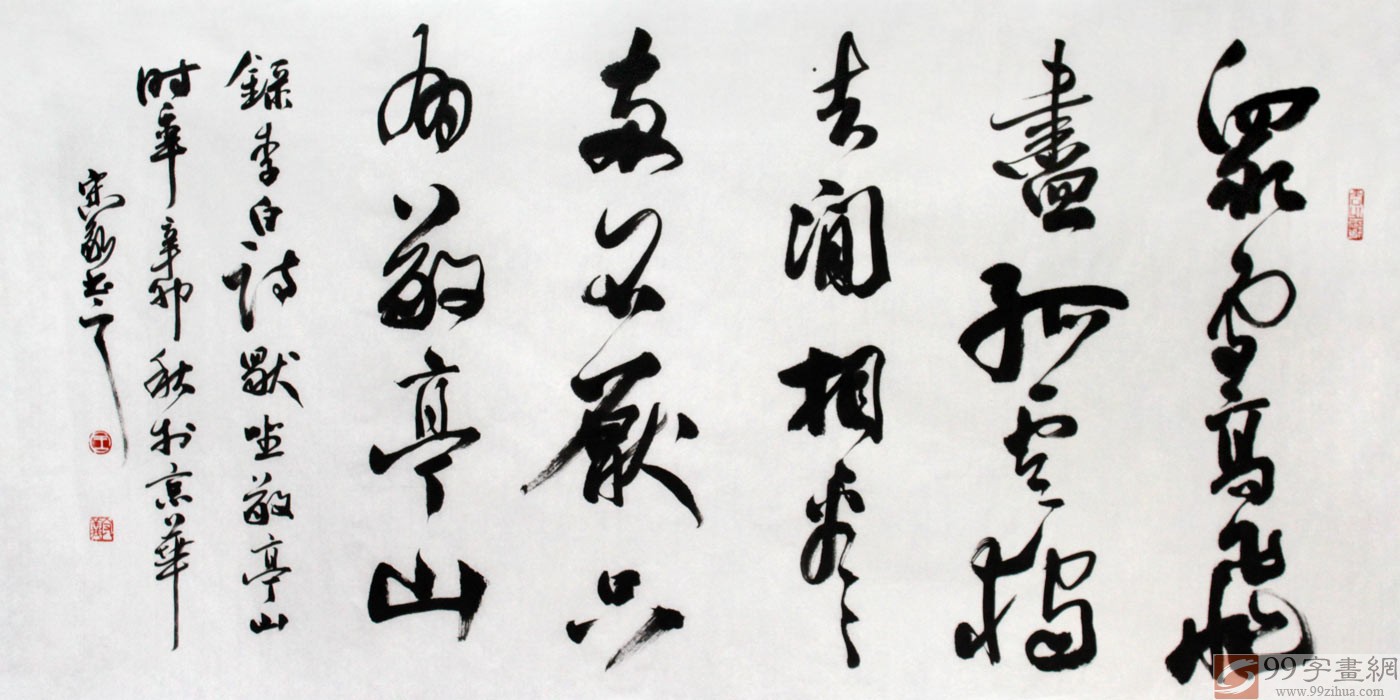 眾鳥高飛
盡孤雲獨
去閒相看
兩不厭只
有敬亭山
錄李白詩獨坐敬亭山
時年辛卯秋於京華
宋
99字畫網
www.99zihua.com